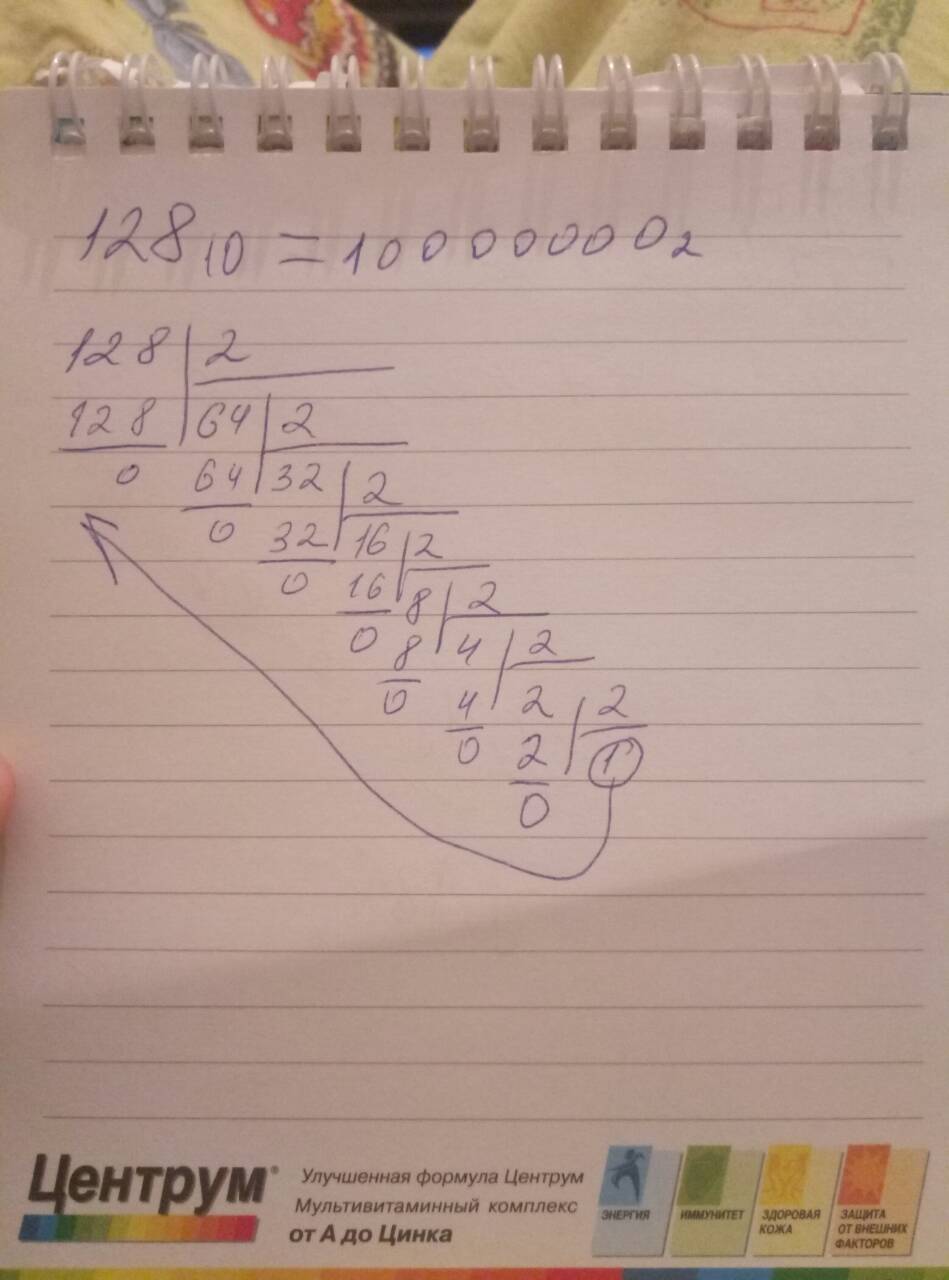 128₁₀ = 10000000₂
128 | 2
128 | 64 | 2
0 64 | 32 | 2
0 32 | 16 | 2
0 16 | 8 | 2
0 8 | 4 | 2
0 4 | 2 | 2
0 2 | 1
0
Центрум®
Улучшенная формула Центрум
Мультивитаминный комплекс
от А до Цинка
ЭНЕРГИЯ
ИММУНИТЕТ
ЗДОРОВАЯ
КОЖА
ЗАЩИТА
ОТ ВНЕШНИХ
ФАКТОРОВ